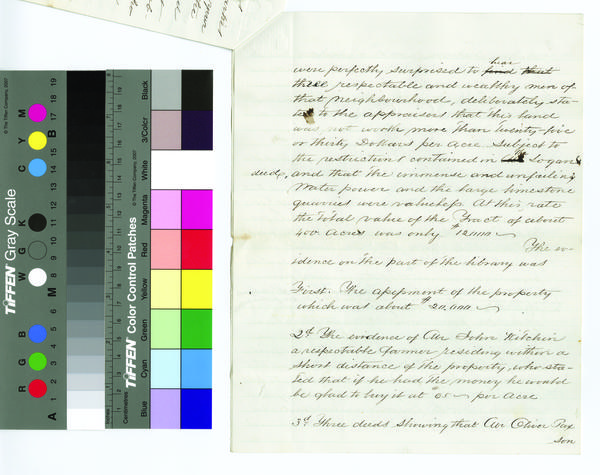 were perfectly surprised to hear
three respectable and wealthy men of
that neighbourhood, deliberately sta-
te to the appraisers that this land
was not worth more than twenty-five
or thirty Dollars per Acre Subject to
the restrictions contained in Logans
deeds, and that the immense and unfailing
Water power and the large limestone
quarries were valueless. At this rate
the Total value of the Tract of about
400 Acres was only $12,000
The ev-
idence on the part of the library was
First. The assessment of the property
which was about $20,000
2d The evidence of Mr John Kitchin
a respectable farmer residing within a
short distance of the property, who sta-
ted that if he had the money he would
be glad to buy it at $65 per Acre
3d Three deeds showing that Mr Oliver Pax
son
TIFFEN Gray Scale
© The Tiffen Company, 2007
R G B W G K C Y M
A 1 2 3 4 5 6 M 8 9 10 11 12 13 14 15 B 17 18 19
TIFFEN Color Control Patches
© The Tiffen Company, 2007
Centimetres
Inches
Blue
Cyan
Green
Yellow
Red
Magenta
White
3/Color
Black